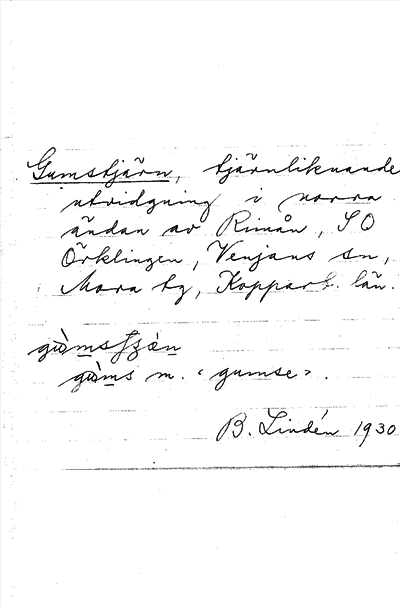 Gumstjärn, tjärnliknande
utvidgning i norra
ändan av Rimån, SO
Örklingen, Venjans sn,
Mora tg, Kopparb. län.
m. ‹ gumse ›.
B. Lindén 1930